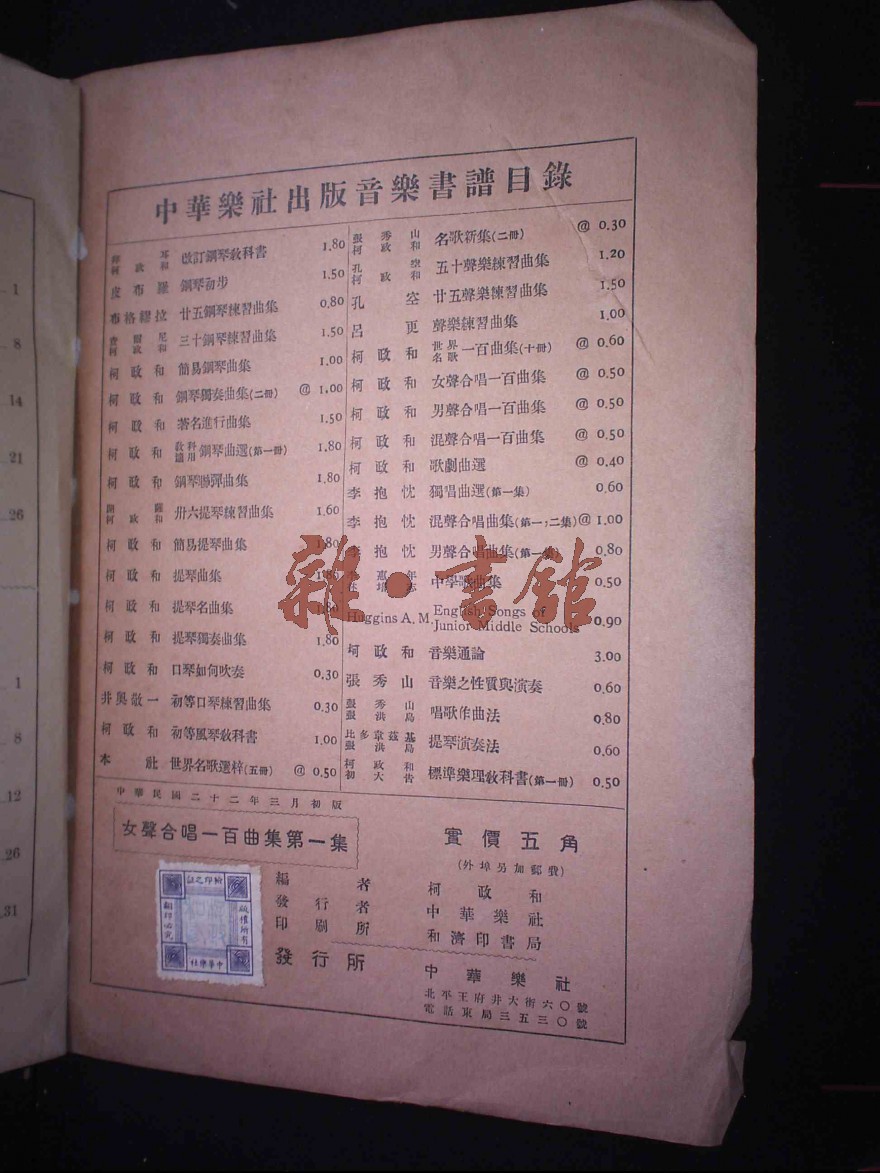 中華樂社出版音樂書譜目錄
柯政和 改訂鋼琴教科書 1.80
皮布羅 鋼琴初步 1.50
布格繆拉 廿五鋼琴練習曲集 0.80
柯政和 三十鋼琴練習曲集 1.50
柯政和 簡易鋼琴曲集 1.00
柯政和 鋼琴獨奏曲集(二冊) @ 1.00
柯政和 著名進行曲集 1.50
柯政和 教科適用鋼琴曲選(第一冊) 1.80
柯政和 鋼琴聯彈曲集 1.80
柯政和 卅六提琴練習曲集 1.60
柯政和 簡易提琴曲集 1.80
柯政和 提琴曲集 1.80
柯政和 提琴名曲集 1.80
柯政和 提琴獨奏曲集 1.80
柯政和 口琴如何吹奏 0.30
井奧敬一 初等口琴練習曲集 0.30
柯政和 初等風琴教科書 1.00
本社 世界名歌選梓(五冊) @ 0.50
張秀山 柯政和 名歌新集(二冊) @ 0.30
孔空 柯政和 五十聲樂練習曲集 1.20
孔空 廿五聲樂練習曲集 1.50
呂更 聲樂練習曲集 1.00
柯政和 世界名歌一百曲集(十冊) @ 0.60
柯政和 女聲合唱一百曲集 @ 0.50
柯政和 男聲合唱一百曲集 @ 0.50
柯政和 混聲合唱一百曲集 @ 0.50
柯政和 歌劇曲選 @ 0.40
李抱忱 獨唱曲選(第一集) 0.60
李抱忱 混聲合唱曲集(第一,二集) @ 1.00
李抱忱 男聲合唱曲集(第一集) 0.80
中學歌曲集 0.50
Huggins A. M. English Songs of Junior Middle Schools 0.90
柯政和 音樂通論 3.00
張秀山 音樂之性質與演奏 0.60
張秀山 張洪島 唱歌作曲法 0.80
比多韋茲基 張洪島 提琴演奏法 0.60
柯政和 初大告 標準樂理教科書(第一冊) 0.50
中華民國二十二年三月初版
女聲合唱一百曲集第一集
實價五角
(外埠另加郵費)
編者 柯政和
發行者 中華樂社
印刷所 和濟印書局
發行所 中華樂社
北平王府井大街六〇號
電話東局三五三〇號
版權所有
翻印必究
中華樂社
雜·書館